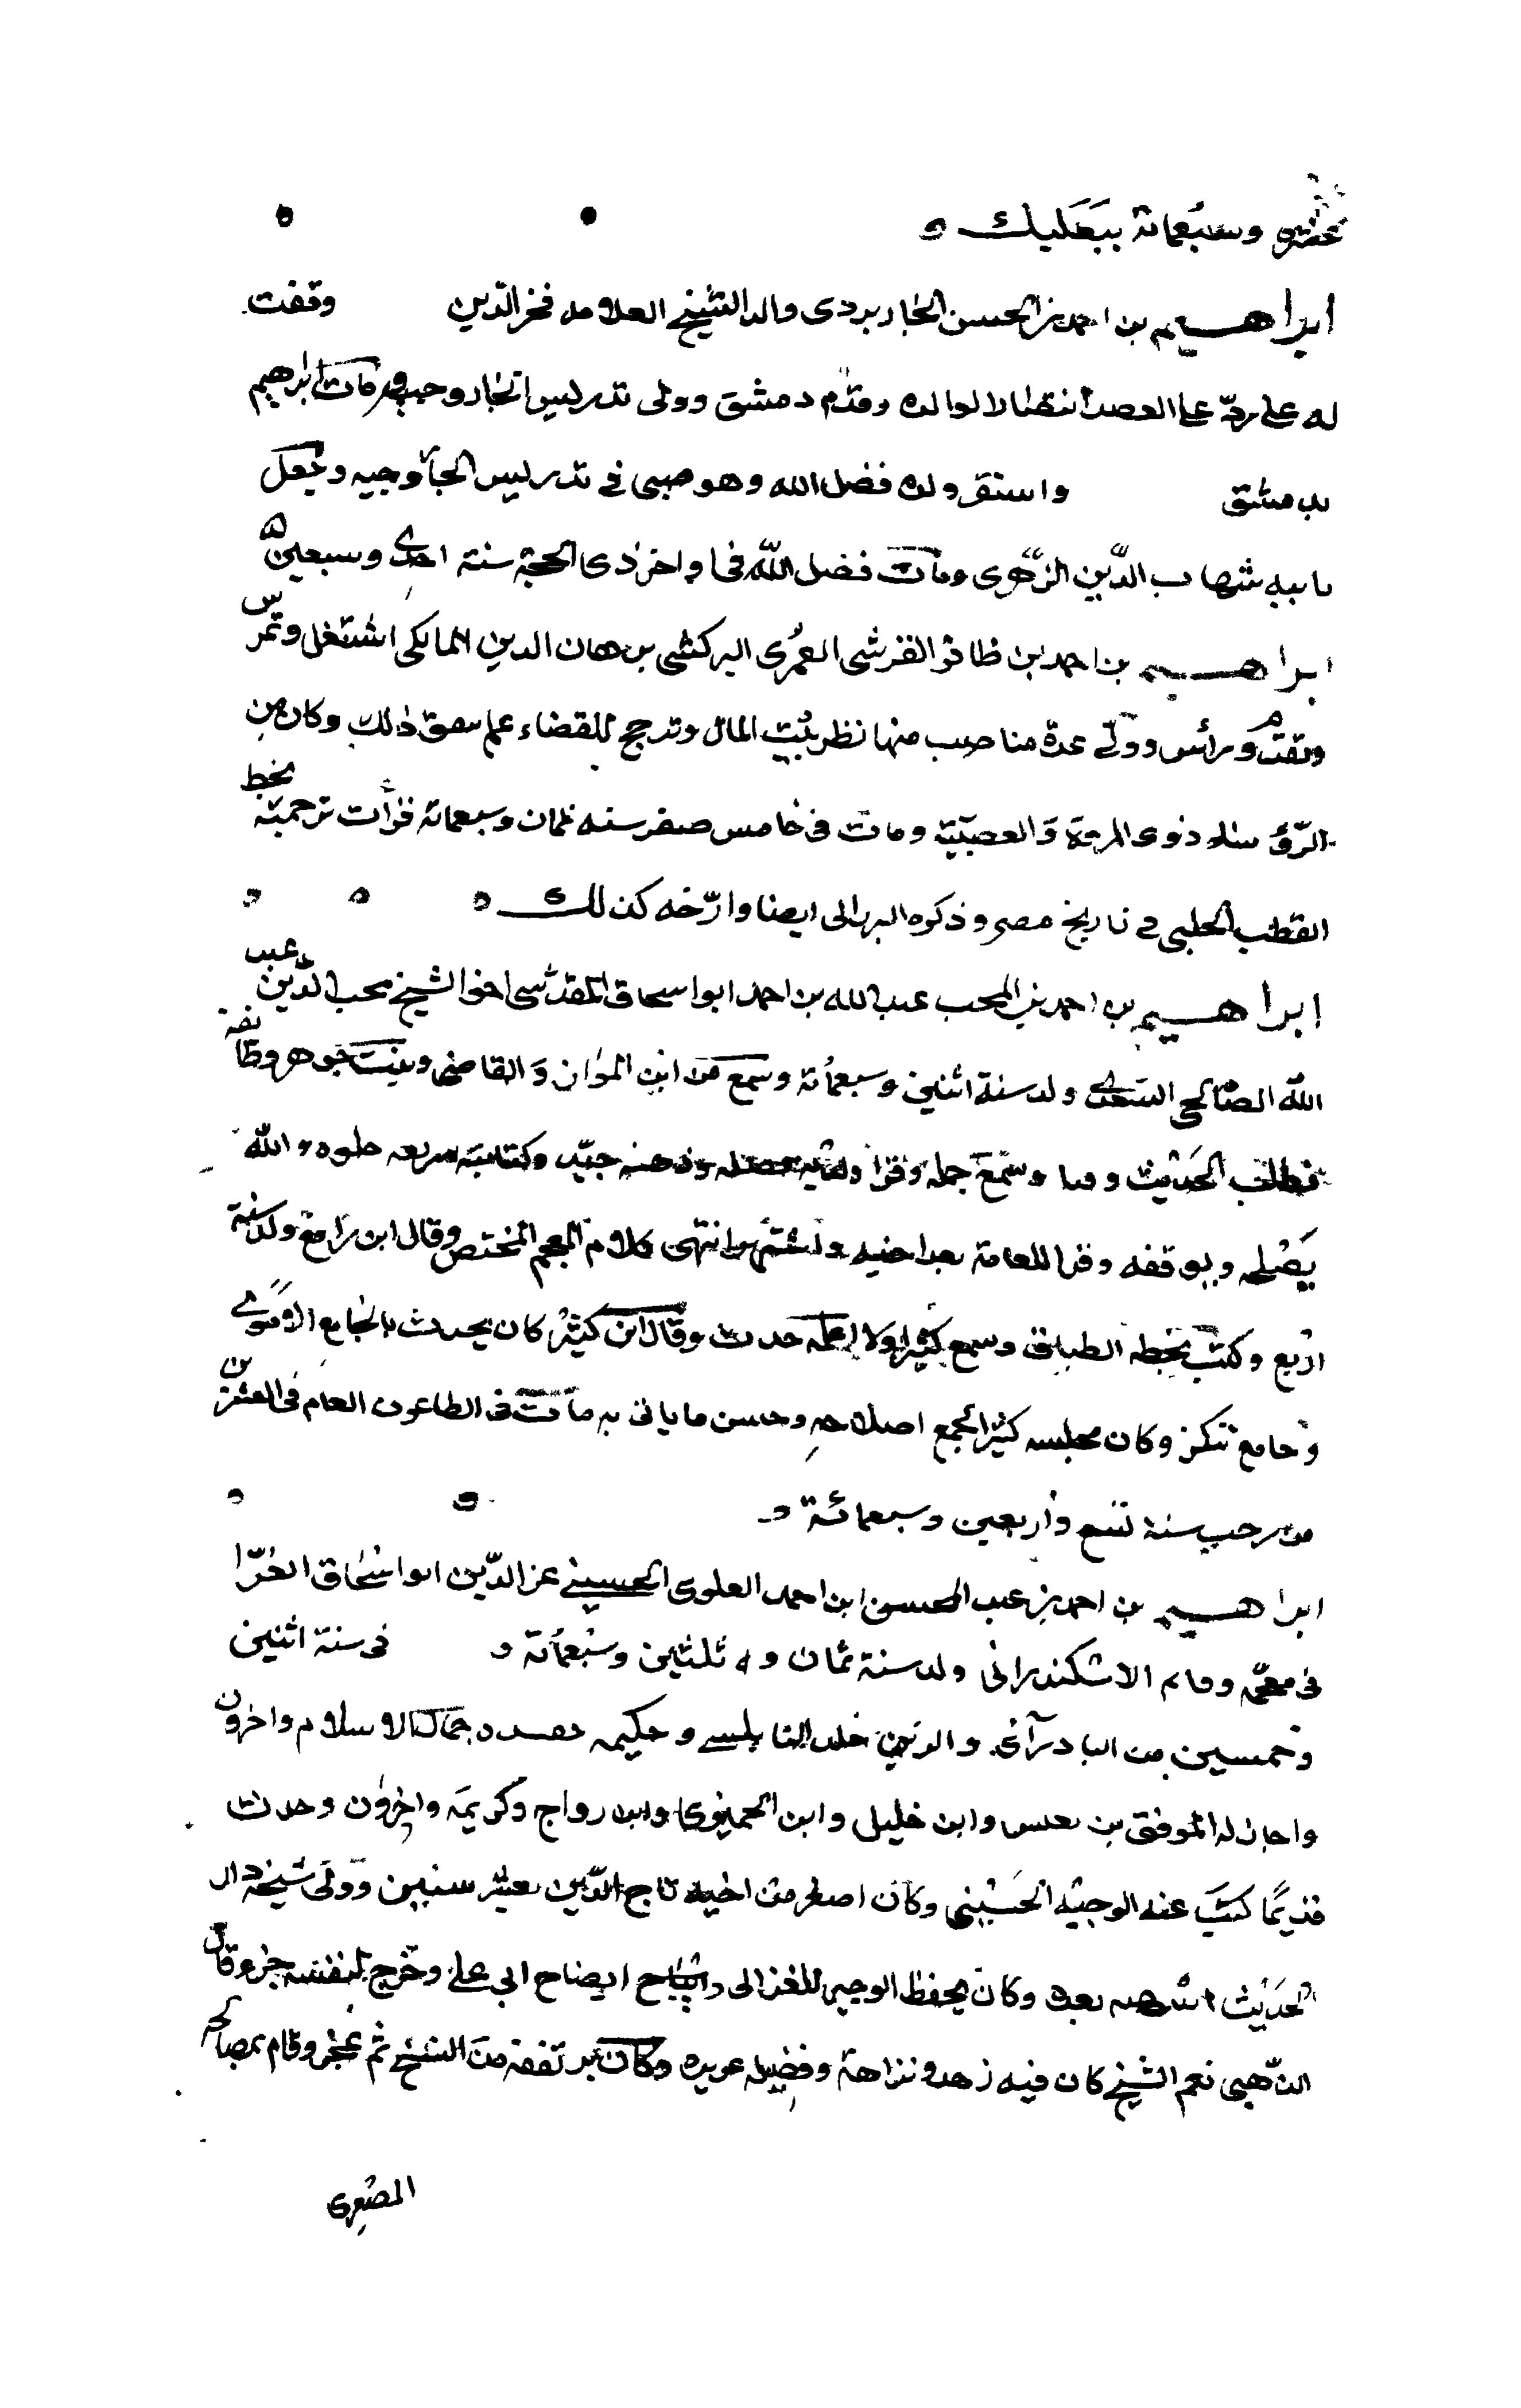 وسبعمائة ببعلبك
ابراهيم بن احمد بن الحسن الجاربردى والد الشيخ العلامه فخر الدين وقفت
له على ردّ على العصد انتصارا لوالده وقدم دمشق وولى تدريس الجاروخيه ومات ابراهيم
بدمشق واستقر ولده فضل الله وهو صبى فى تدريس الجاروخيه وعمل
نا ببه شهاب الدّين الزّهرى ومات فضل الله فى اواخر ذى الحجة سنة احدى وسبعين
ابراهيم بن احمد ابن ظافر القرشى العمرى البركشى برهان الدين المالكى اشتغل وتمرس
وتقدم ورأس وولّى عدة مناصب منها نظر بيت المال وترجح للقضاء على ذلك وكان من
الرؤساء ذوى المروة والعصبية ومات فى خامس صفر سنه ثمان وسبعمائة قرأت ترجمته بخط
القطب الحلبى فى تاريخ مصر وذكره البرزالى ايضا وارّخه كذلك
ابراهيم بن احمد بن المحب عبد الله بن احمد ابو اسحاق المقدسى اخو الشيخ محب الدّين عبد
الله الصالحى السعدى ولد سنة اثنين وسبعمأئة وسمع من ابن الموازن والقاضى وبنت جوهر وطائفة
فطلب الحديث وسمع جملة وقرا وذهنه جيّد وكتابته سريعه حلوه والله
يصلحه ويوفقه وقرا للعامة بعد اخيه واشتهر انتهى كلام المعجم المختص وقال ابن رافع ولد سنة
اربع وكتب بخطه الطباق وسمع كثيرا ولا اعلمه حدث وقال ابن كثير كان يحدث بالجامع الاموى
وجامع تنكز وكان مجلسه كثير الجمع اصلاحه وحسن ما ياتى به مات فى الطاعون العام فى العشرين
من رجب سنة تسع واربعين وسبعمائة
ابراهيم بن احمد بن عبد المحسن ابن احمد العلوى الحسينى عز الدّين ابو اسحاق الغرّا
فى الاسكندرانى ولد سنة ثمان وثلثين وسبعمأئة فى سنة اثنين
وخمسين من البادرآئى والزين خلد النابلسى و جمال الاسلام واخرون
واجاز له الموفق بن يعيش وابن خليل وابن الجميزى وابن رواج وكريمة واخرون وحدث
قديمًا كتب عنه الوجيه الحسينى وكان اصغر من اخيه تاج الدّين بعشر سنين وولى شيخة دار
الحديث بعده وكان يحفظ الوجيز للغزالى وايضاح ابى على وخرج لنفسه جزء وقال
الذّهبى نعم الشيخ كان فيه زهد ونزاهة وفضيله وكان يرتفق من النسخ ثم عجز وقام بمصالحه
المصرى